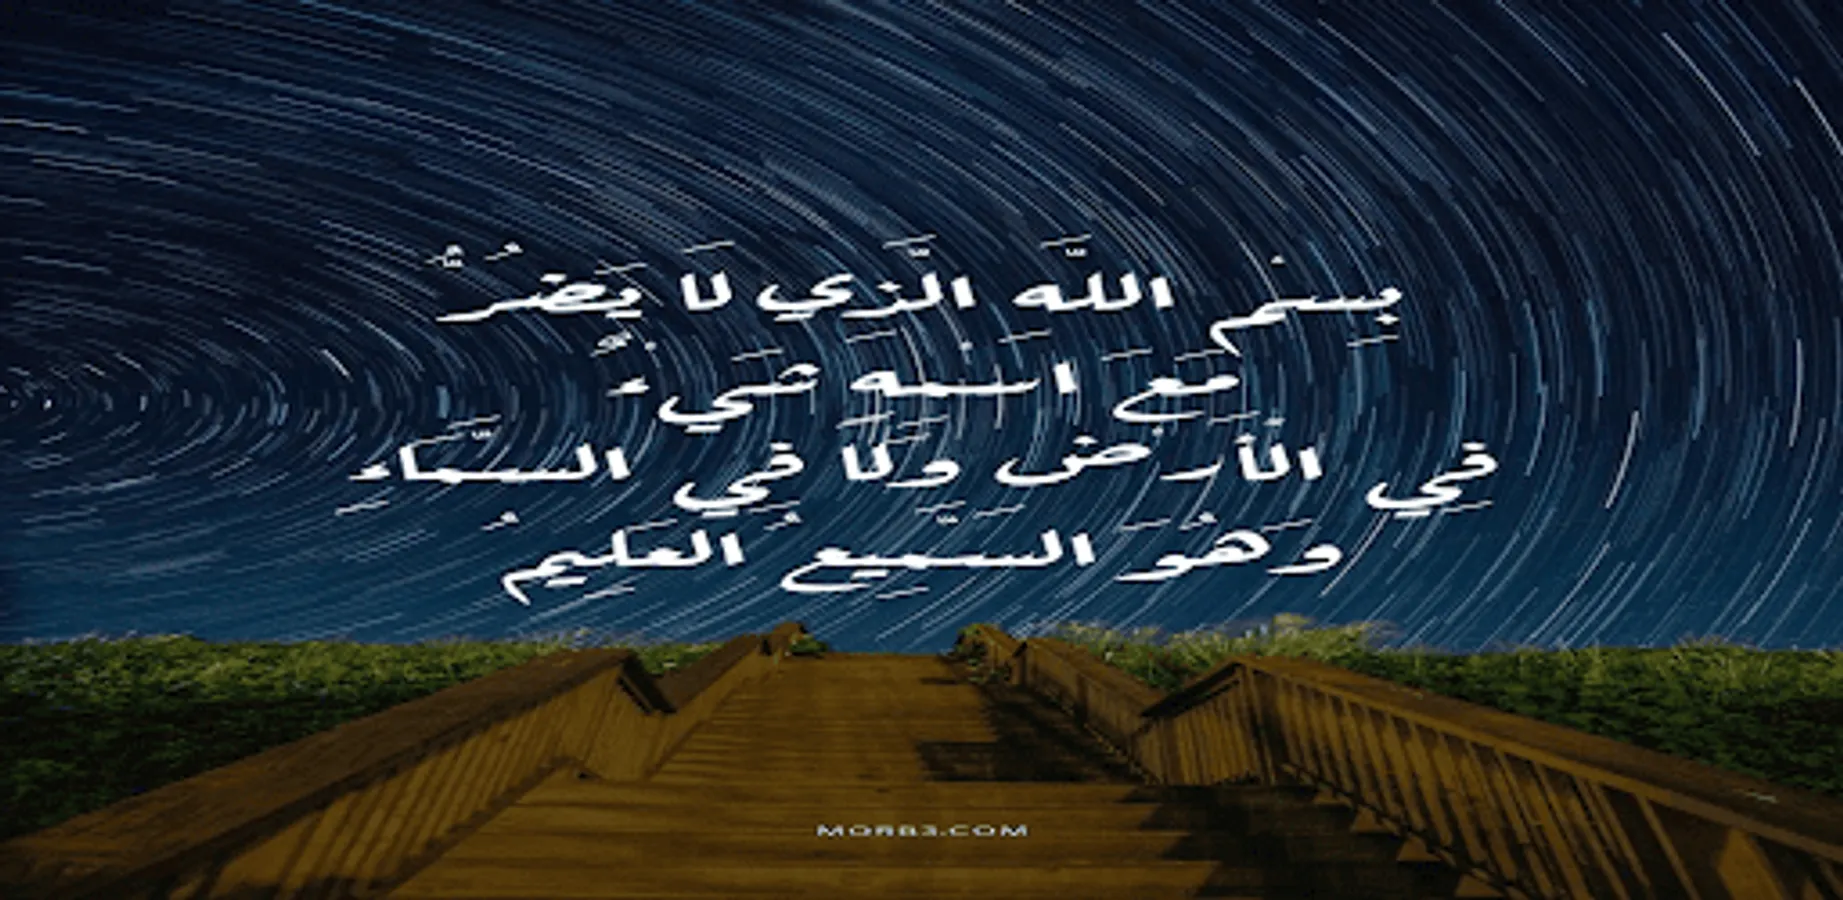 بِسْمِ اللَّهِ الَّذِي لَا يَضُرُّ
مَعَ اسْمِهِ شَيْءٌ
فِي الْأَرْضِ وَلَا فِي السَّمَاءِ
وَهُوَ السَّمِيعُ الْعَلِيمُ
MORB3.COM